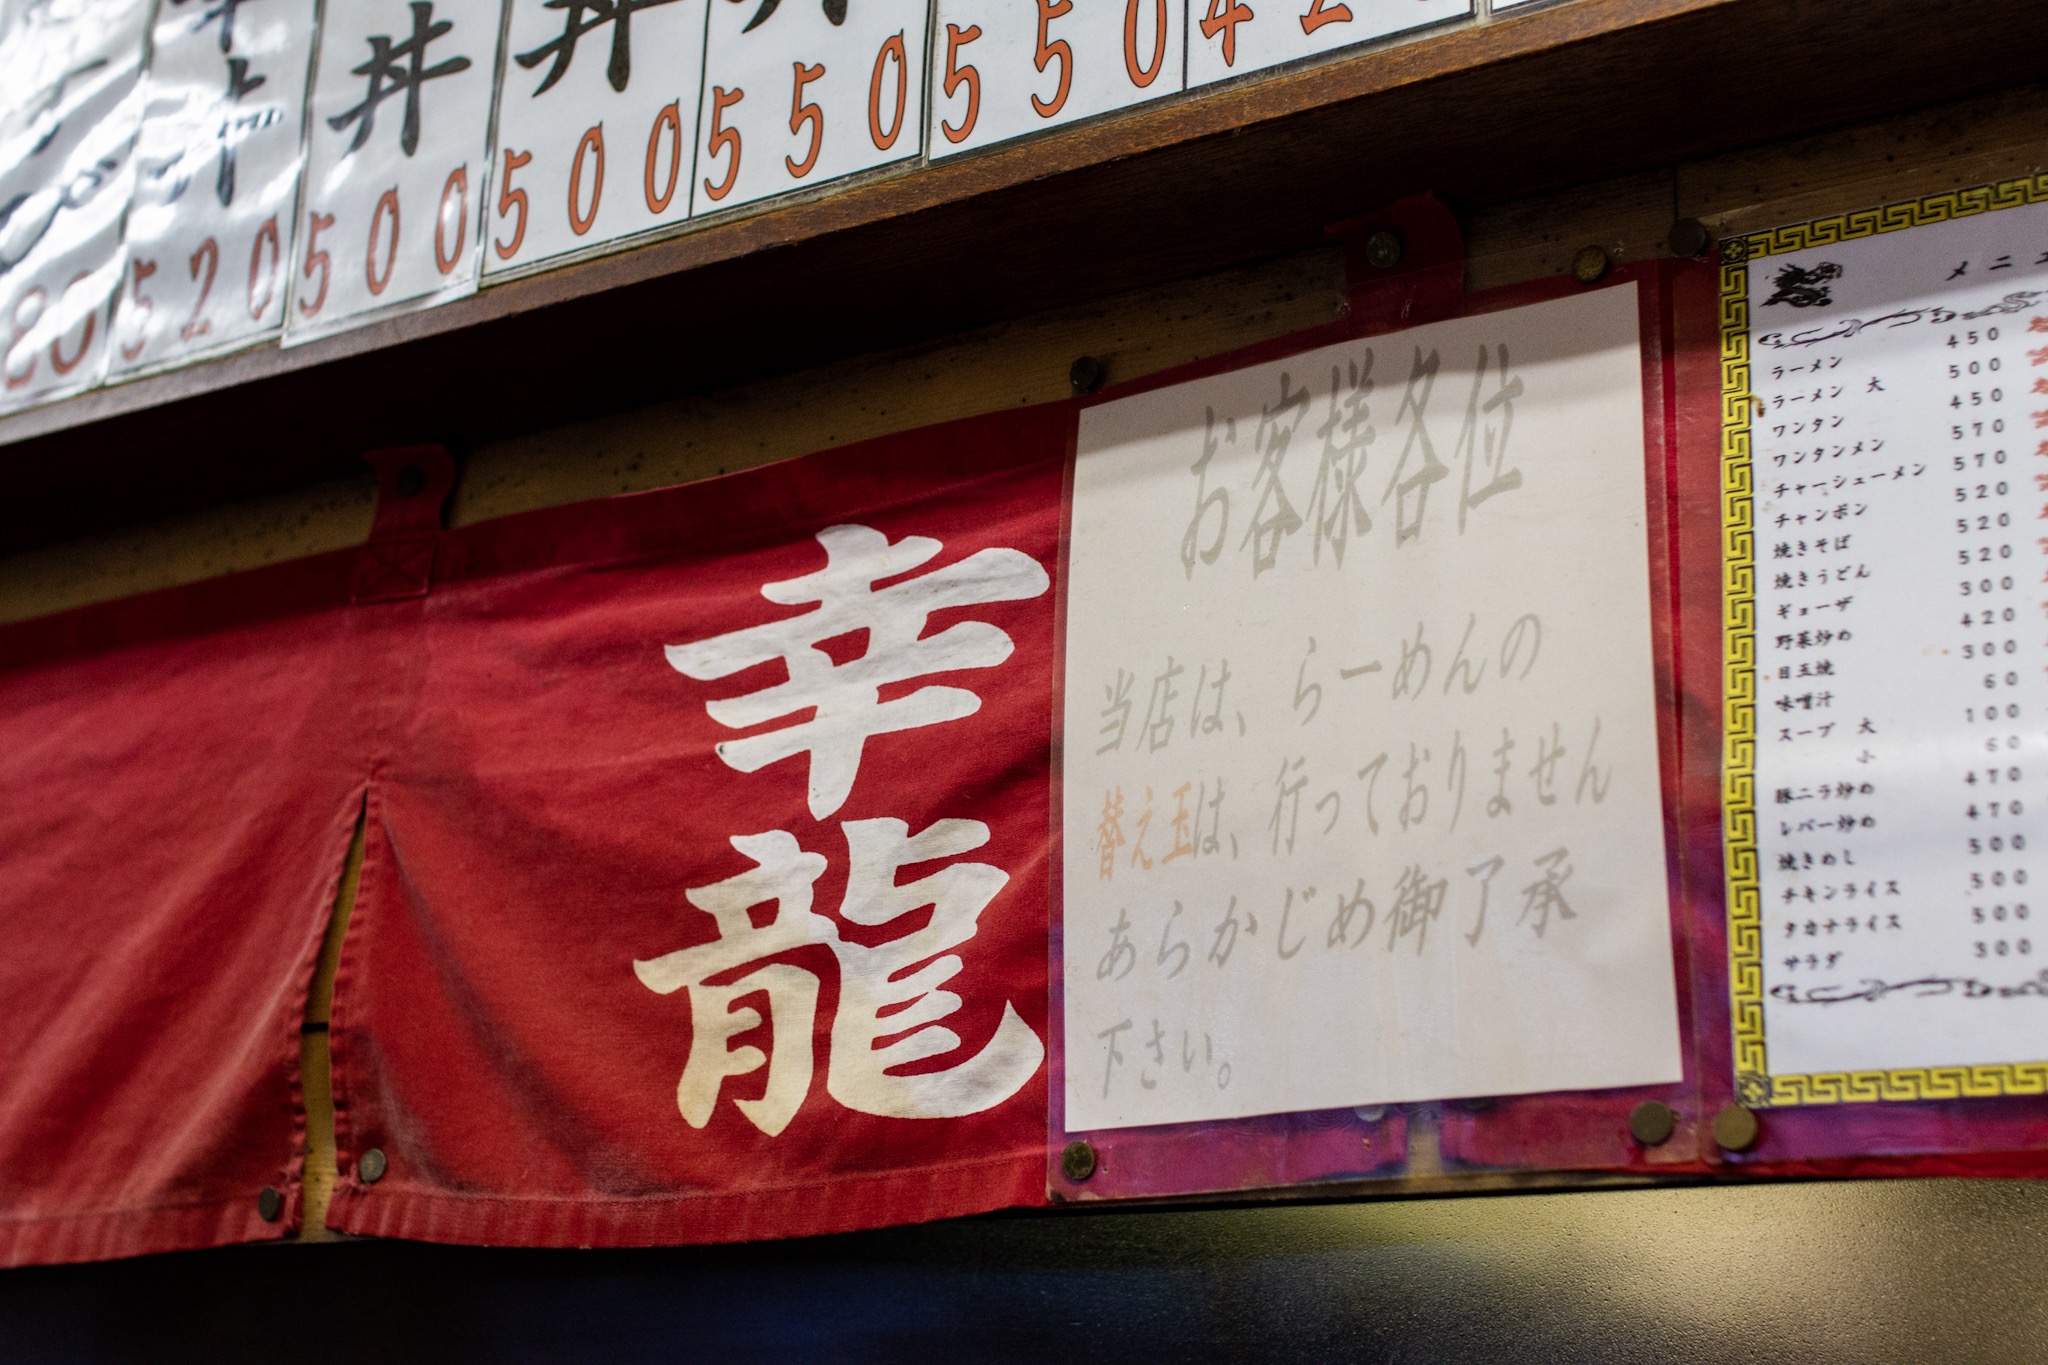 丼
丼
520
500
500
550
550
幸龍
お客様各位
当店は、らーめんの
替え玉は、行っておりません
あらかじめ御了承
下さい。
メニュ
ラーメン 450
ラーメン 大 500
ワンタン 450
ワンタンメン 570
チャーシューメン 570
チャンポン 520
焼きそば 520
焼きうどん 520
ギョーザ 300
野菜炒め 420
目玉焼 300
味噌汁 60
スープ 大 100
小 60
豚ニラ炒め 470
レバー炒め 470
焼きめし 500
チキンライス 500
タカナライス 500
サラダ 300